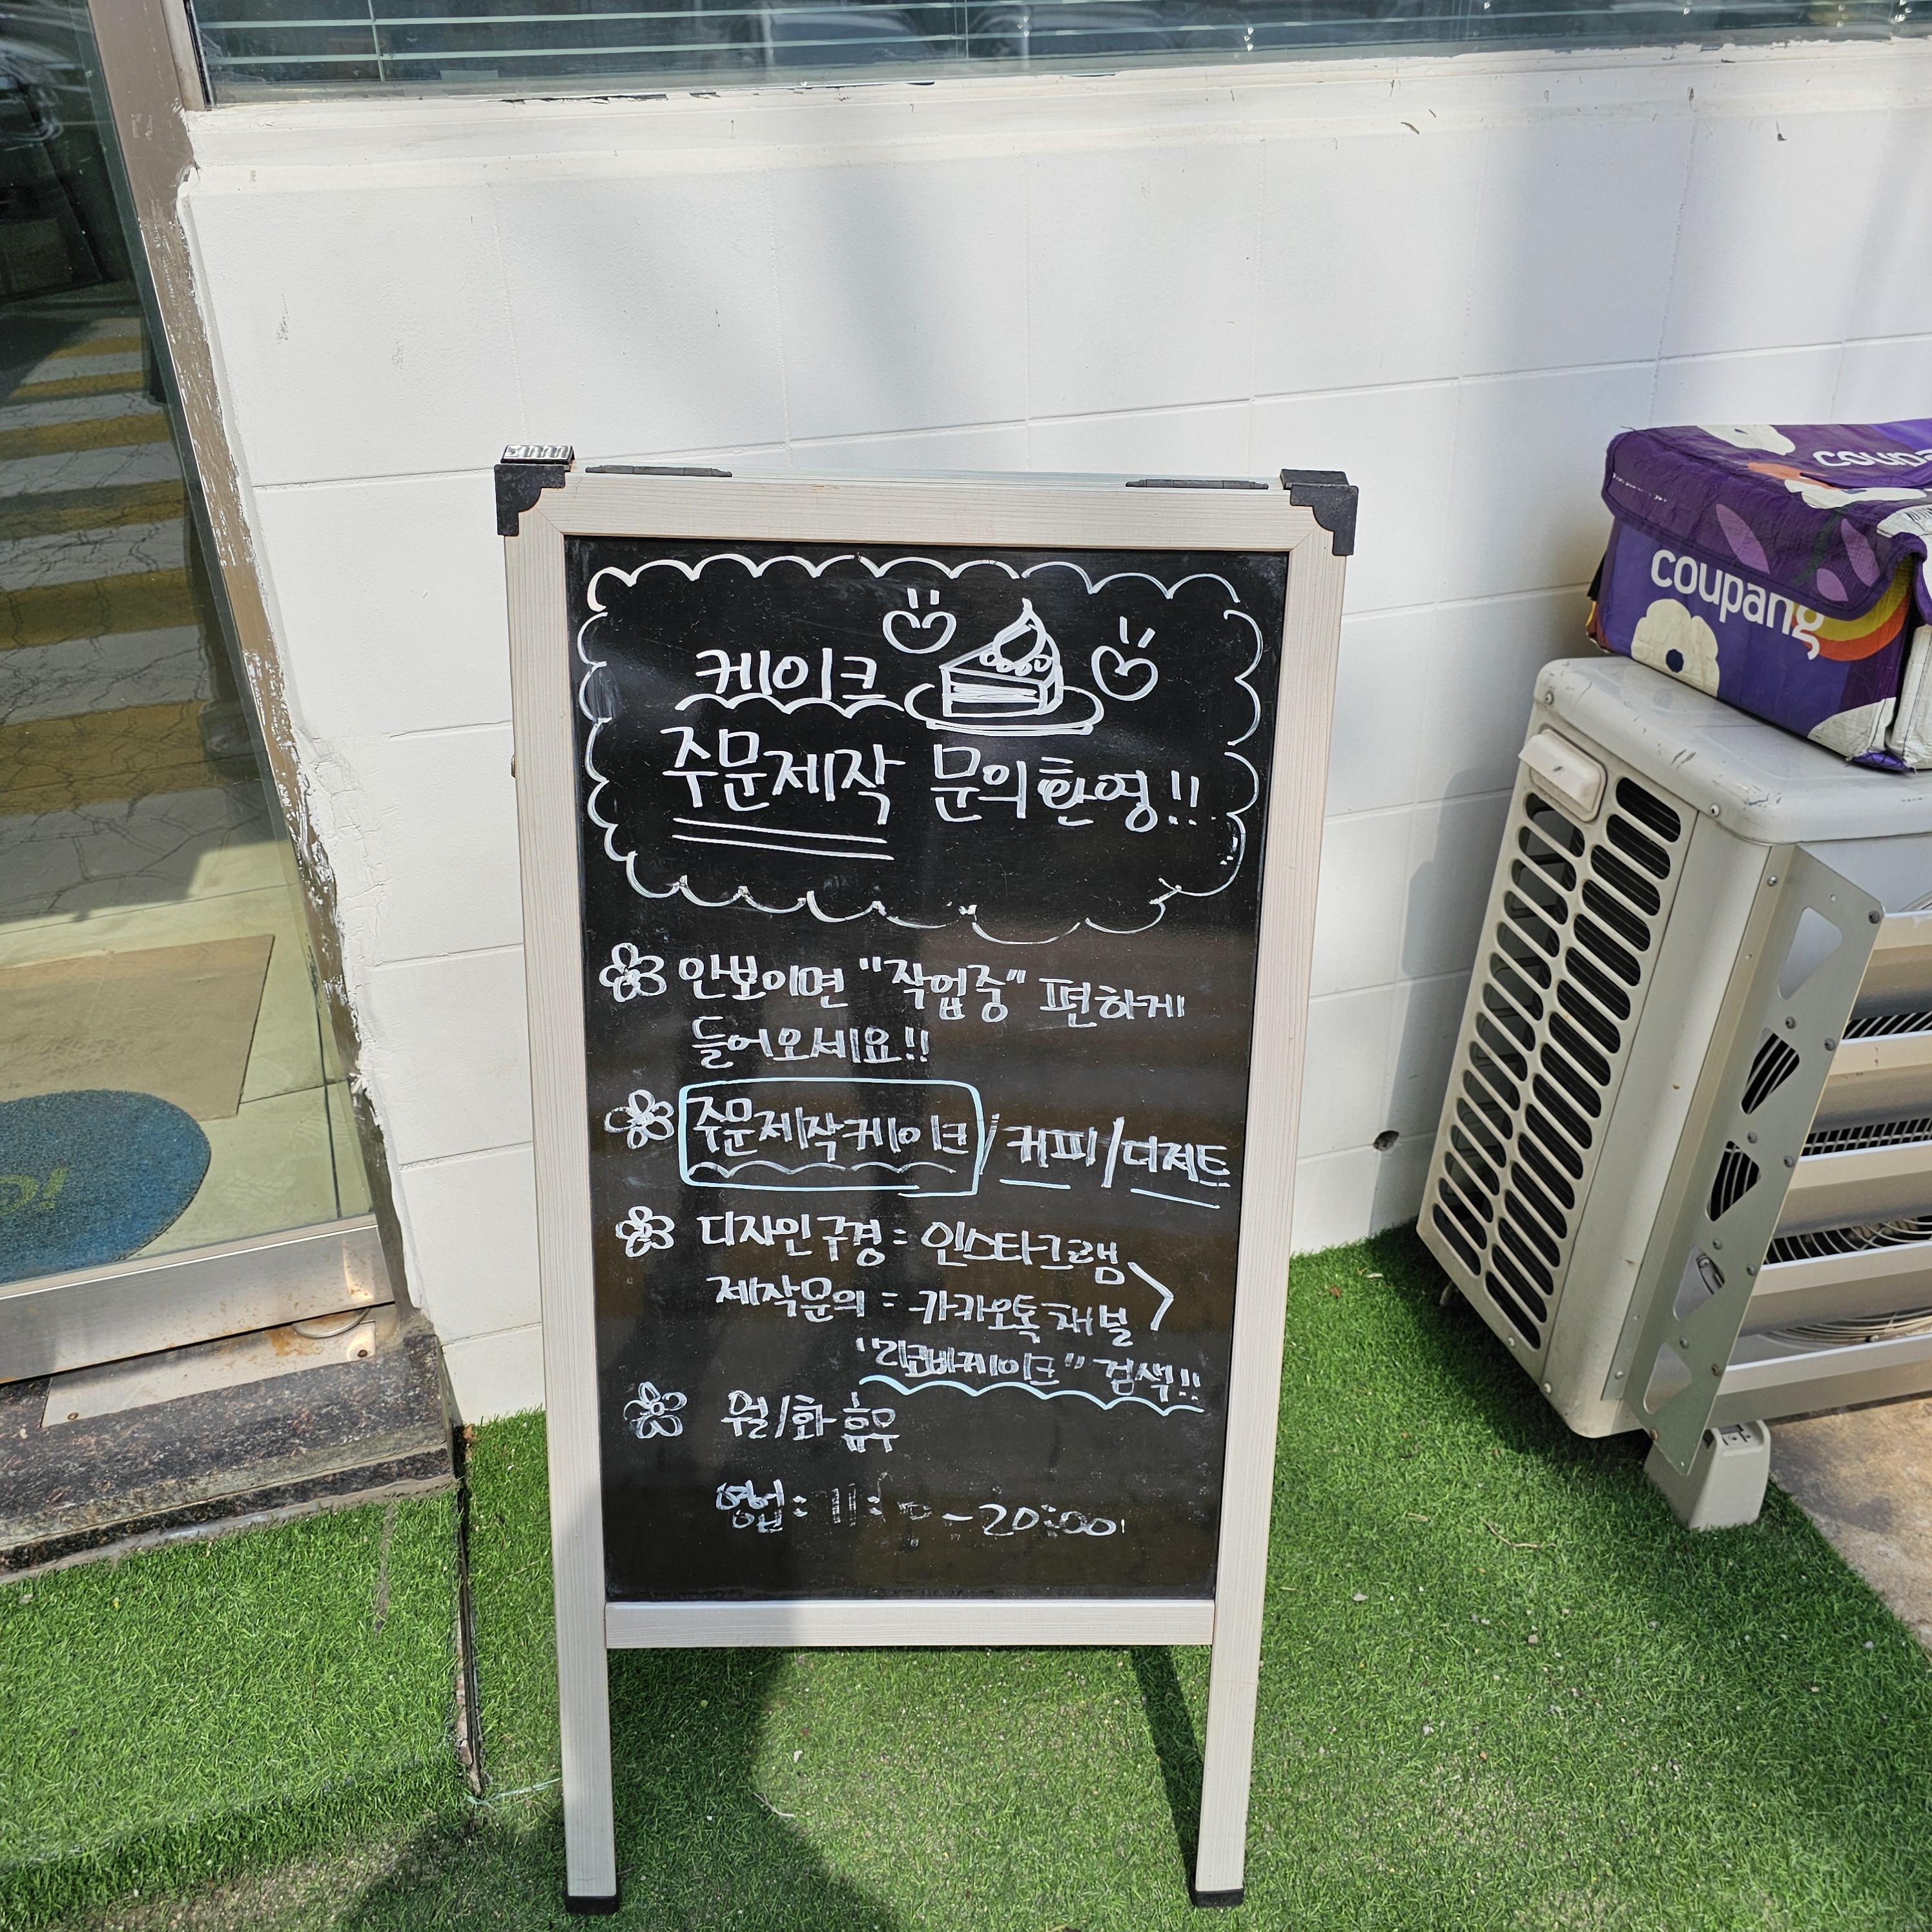 케이크
주문제작 문의환영!!
안보이면 "작업중" 편하게
들어오세요!!
주문제작케이크 / 커피/디저트
디자인구경 = 인스타그램
제작문의 = 카카오톡채널
검색!!
월/화 휴무
영업: - 20:00
coupang